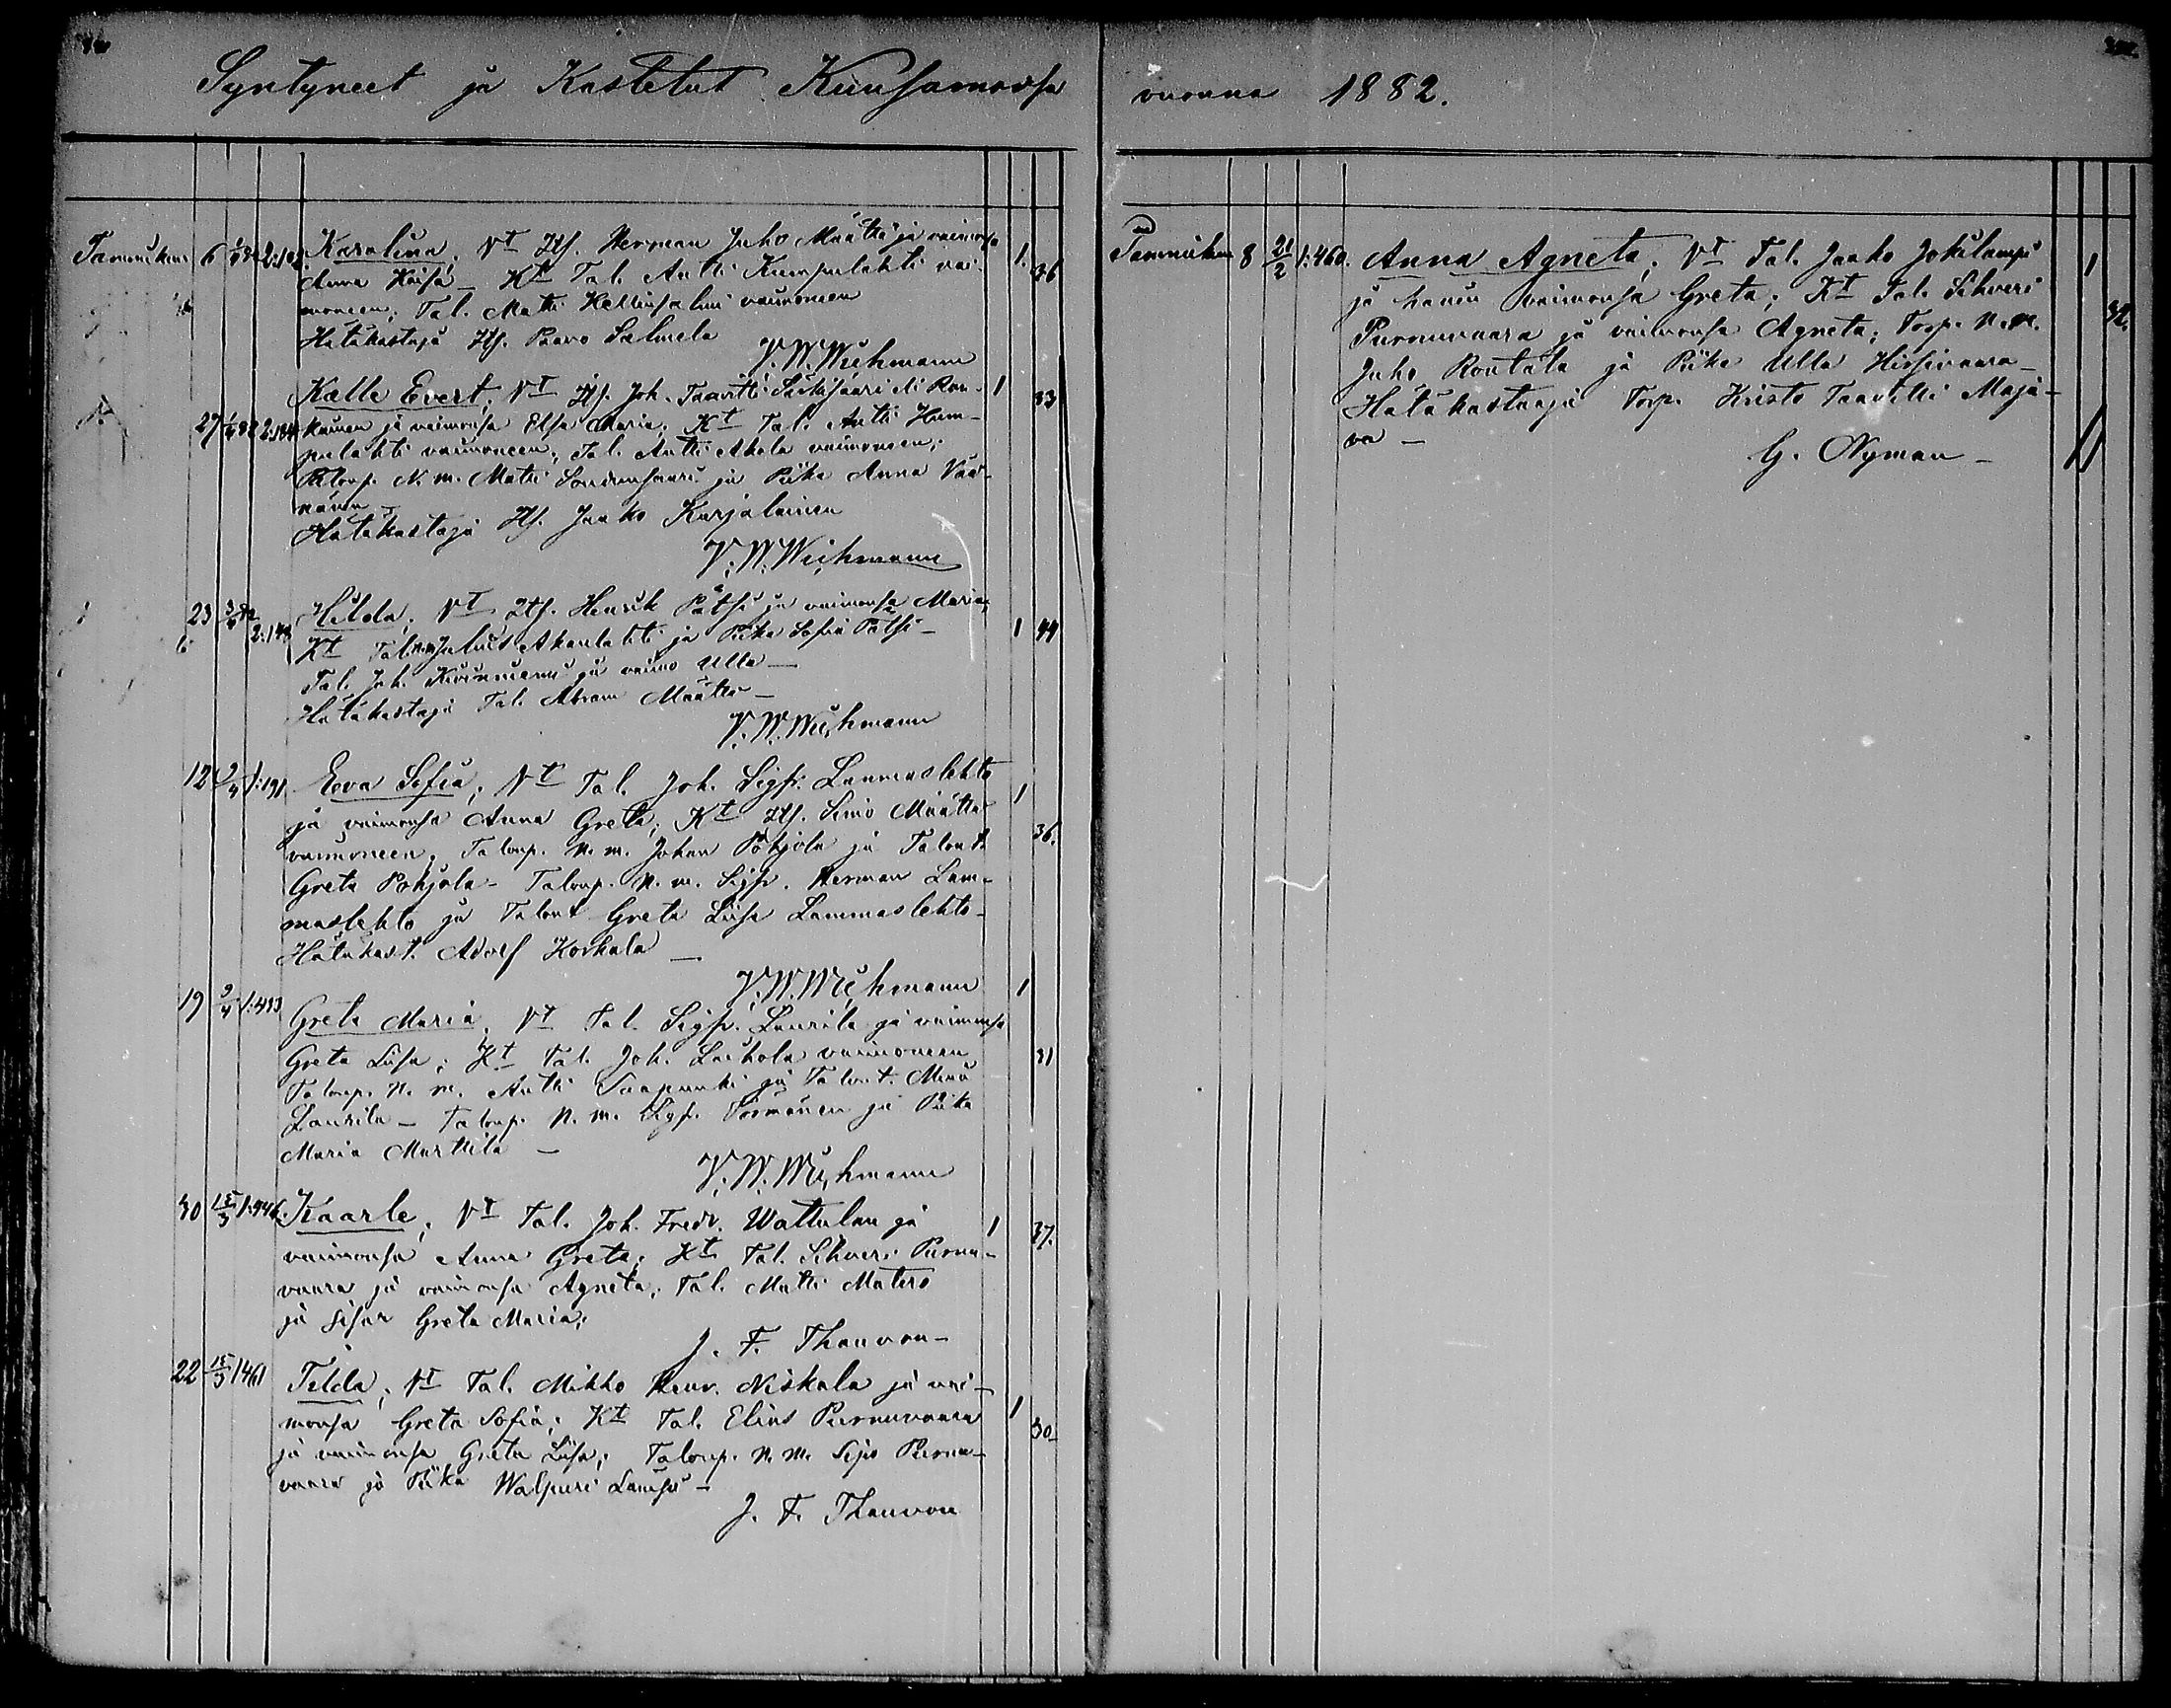 Syntyneet ja Kastetut Kuusamossa
vuonna 1882.
Karolina, Vt Its. Herman Juho Määttä ja vaimonsa
Anna Kaisa - Kt Tal. Antti Kumpulahti vai-
moneen, Tal. Matti Kallunsalmi vaimoneen
Hätäkastaja Its. Paavo Salmela
V. W. Wichmann
Kalle Evert, Vt Its. Joh. Taavetti
27 kainen ja vaimonsa Elsa Maria, Kt Tal. Antti Kum-
pulahti vaimoneen, Tal. Antti Akola vaimoneen,
Taloup. N. m. Matti ja Piika Anna Vää-
nänen
Hätäkastaja Its. Jaako Karjalainen
V. W. Wichmann
23 Hilda, Vt Its. Henrik Pätsi ja vaimonsa Maria,
Kt Julius Akanlahti ja Piika Sofia Pätsi -
Tal. Joh. ja vaimo Ulla -
Hätäkastaja Tal. Abram Määttä -
V. W. Wichmann
12 2/4 1:191 Eeva Sofia, Vt Tal. Joh. Sigfr. Lammaslehto 1
ja vaimonsa Anna Greta, Kt Its. Simo Määttä
vaimoneen, Taloup. N. m. Johan Pohjola ja Talont. 36.
Greta Pohjola - Taloup. N. m. Sigfr. Herman Lam-
maslehto ja Talont Greta Liisa Lammaslehto -
Hätäkast. Adolf Korkala -
V. W. Wichmann
19 1:433 Greta Maria, Vt Tal. Sigfr. Laurila ja vaimonsa 1
Greta Liisa; Kt Tal. Joh. Laihola vaimoneen 31
Taloup. N. m. Antti Saapunki ja Talont. Mina
Laurila - Taloup. N. m. Sigfr. Törmänen ja Piika
Maria Marttila -
V. W. Wichmann
30 15/3 1:446. Kaarle, Vt Tal. Joh. Fredr. Wattulan ja 1
vaimonsa Anna Greta, Kt Tal. Sihveri Purnu- 37.
vaara ja vaimonsa Agneta, Tal. Matti Matero
ja sisar Greta Maria;
J. F. Thauvon -
22 15/3 1461 Tilda, Vt Tal. Mikko Henr. Niskala ja vai-
monsa Greta Sofia; Kt Tal. Elias Purnuvaara 1
ja vaimonsa Greta Liisa, Taloup. N. m. Sipo Purnu- 30
vaara ja Piika Walpuri Lämsä -
J. F. Thauvon
Tammikuu 8 21/2 1:460. Anna Agneta, Vt Tal. Jaako Jokilampi 1
ja hänen vaimonsa Greta; Kt Tal. Sihveri
Purnuvaara ja vaimonsa Agneta, Torp. N. m. 32.
Juho Rontala ja Piika Ulla Hirsivaara -
Hätäkastaaja Torp. Kristo Taavetti Maja-
va -
G. Nyman -